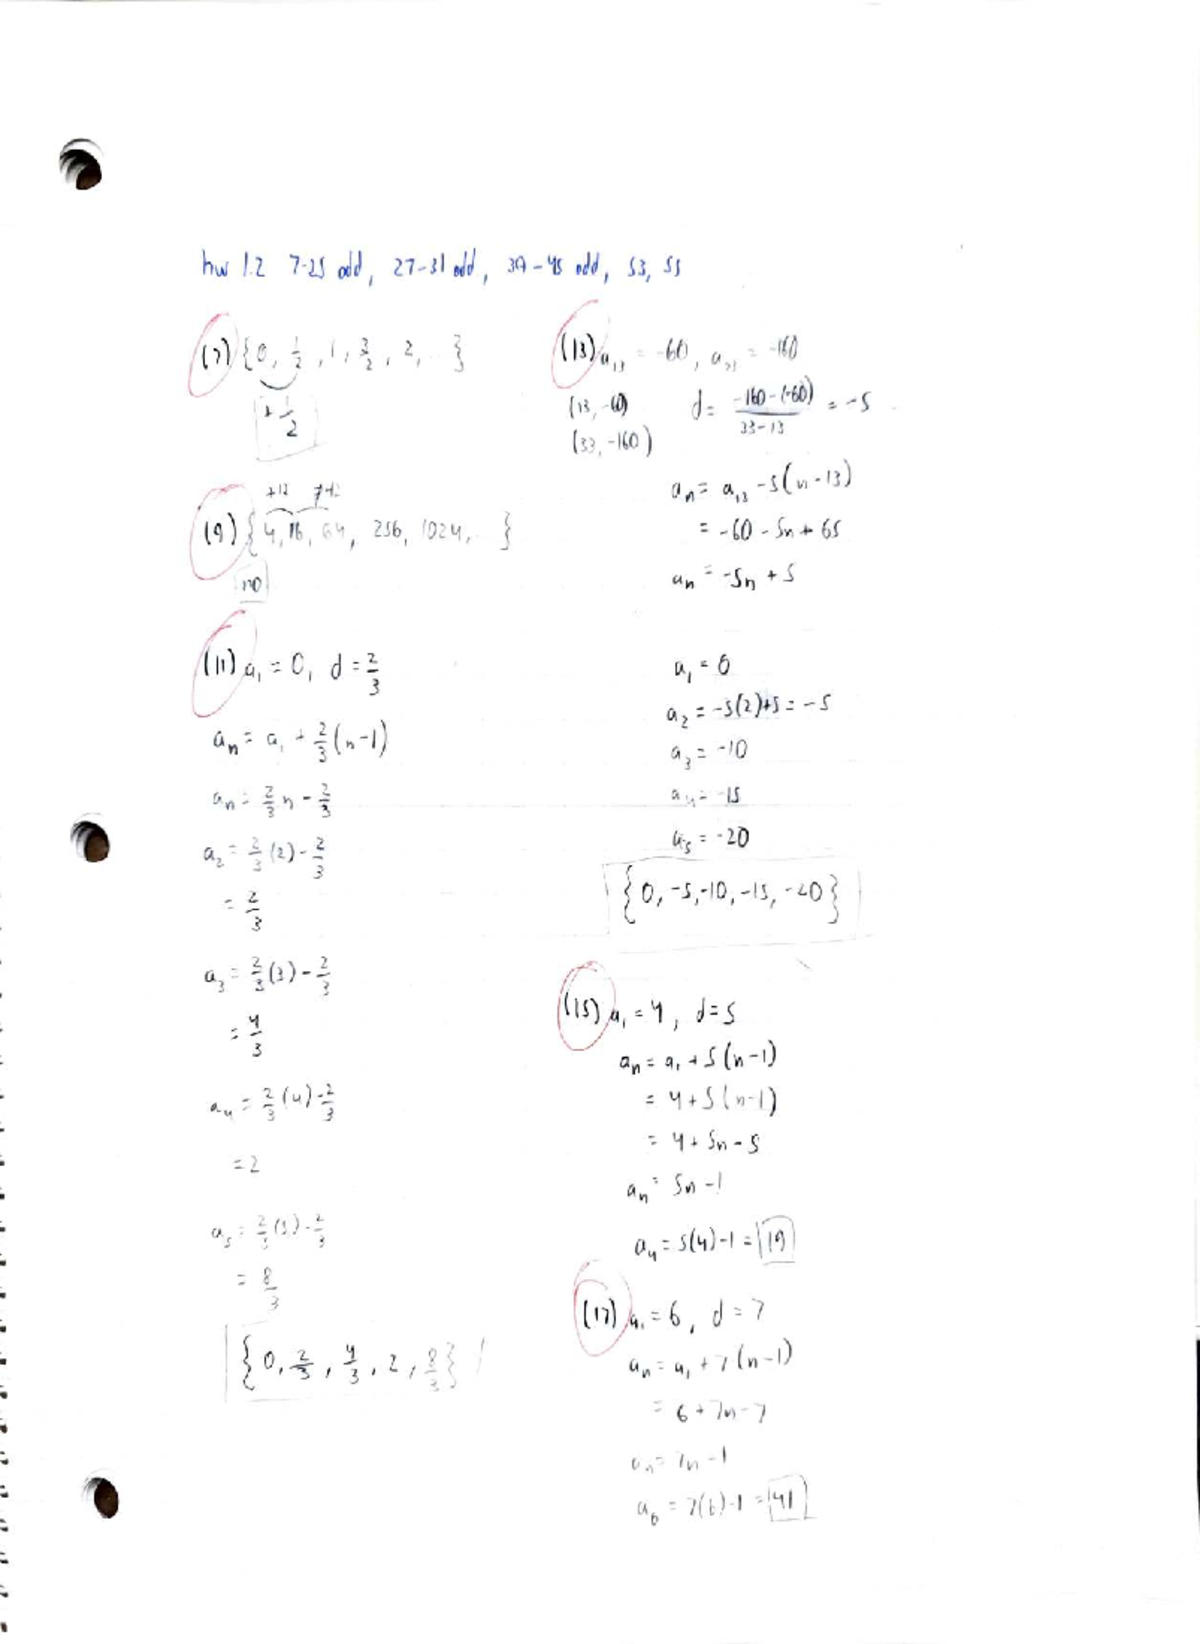 hw 1.2 7-25 odd, 27-31 odd, 39-45 odd, 53, 55
(7) {0, 1/2, 1, 3/2, 2, ...}
+ 1/2
(9) {4, 16, 64, 256, 1024, ...}
+12
no
(11) a₁ = 0, d = 2/3
aₙ = a₁ + 2/3 (n-1)
aₙ = 2/3 n - 2/3
a₂ = 2/3 (2) - 2/3
= 2/3
a₃ = 2/3 (3) - 2/3
= 4/3
a₄ = 2/3 (4) - 2/3
= 2
a₅ = 2/3 (5) - 2/3
= 8/3
{0, 2/3, 4/3, 2, 8/3}
(13) a₁₃ = -60, a₃₃ = -160
(13, -60)
(33, -160)
d = -160-(-60) / 33-13 = -5
aₙ = a₁₃ - 5(n-13)
= -60 - 5n + 65
aₙ = -5n + 5
a₁ = 0
a₂ = -5(2)+5 = -5
a₃ = -10
a₄ = -15
a₅ = -20
{0, -5, -10, -15, -20}
(15) a₁ = 4, d = 5
aₙ = a₁ + 5(n-1)
= 4 + 5(n-1)
= 4 + 5n - 5
aₙ = 5n - 1
a₄ = 5(4)-1 = 19
(17) a₁ = 6, d = 7
aₙ = a₁ + 7(n-1)
= 6 + 7n - 7
aₙ = 7n - 1
a₆ = 7(6)-1 = 41